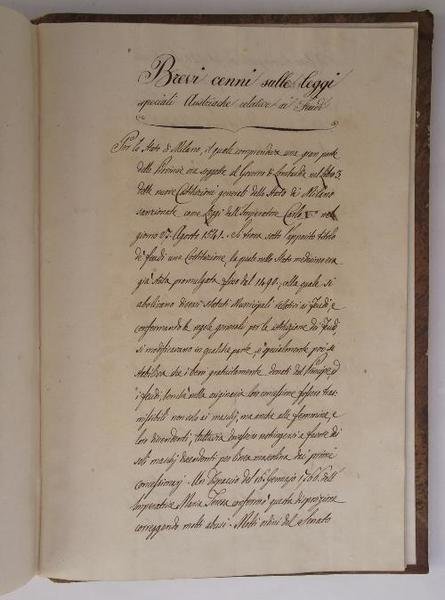 Brevi cenni sulle leggi
speciali Austriache relative ai Feudi
Per lo Stato di Milano, il quale comprendeva una gran parte
delle Provincie ora soggette al Governo di Lombardia nel libro 3
delle nuove Costituzioni generali dello Stato di Milano
sanzionate come Leggi dall'Imperatore Carlo V nel
giorno 27 Agosto 1541. Si trova sotto l'apposito titolo
de' feudi una Costituzione, la quale nello Stato medesimo era
già stata promulgata fino dal 1490, colla quale si
abolivano diversi statuti Municipali relativi ai Feudi, e
confermando le regole generali per la istituzione dei Feudi
si modificavano in qualche parte, e specialmente poi si
stabiliva che i beni gratuitamente donati dal Principe ed
i feudi, benchè nella originaria lor concessione fossero tras
missibili non solo ai maschj, ma anche alle femmine, e
loro discendenti, tuttavia dovessero restringersi a favore dei
soli maschj discendenti per linea mascolina dai primi
concessionarj. Un Dispaccio del 16 Gennajo 1766 dell'
Imperatrice Maria Teresa confermò questa disposizione
correggendo molti abusi. Molti ordini del Senato